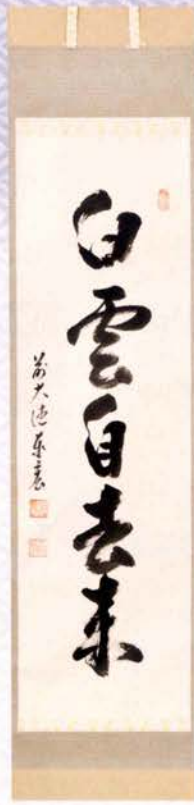 白雲自去来
前大徳